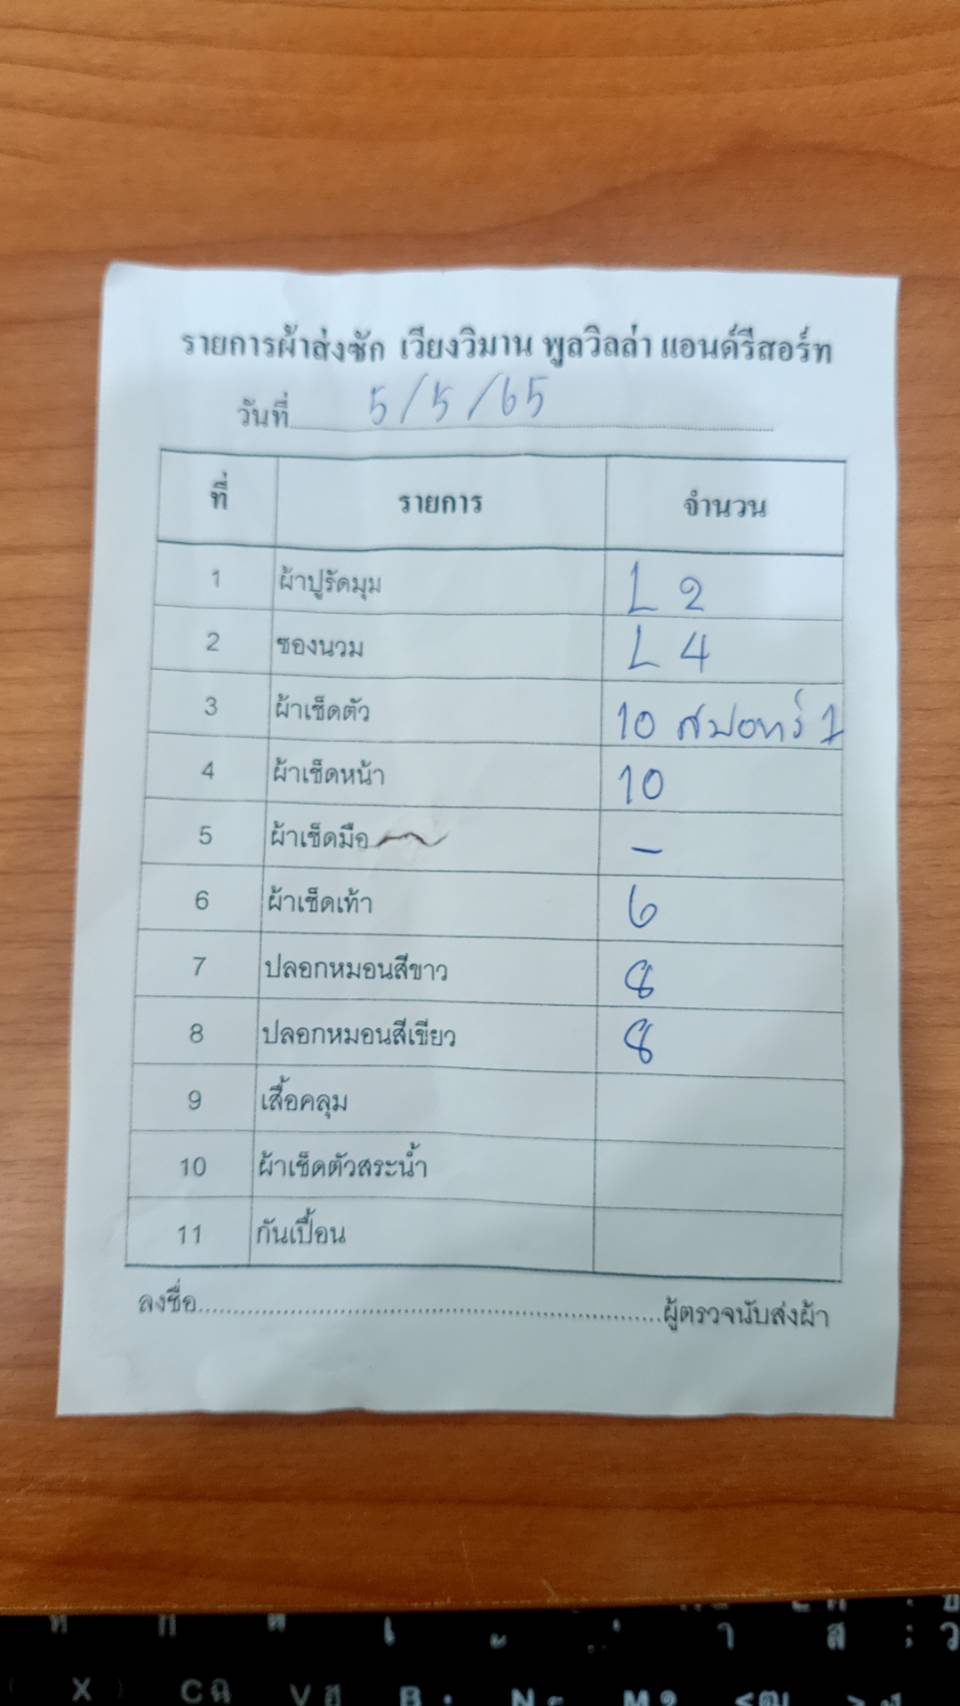 รายการผ้าส่งซัก เวียงวิมาน พูลวิลล่า แอนด์รีสอร์ท
วันที่ 5/5/65
ที่ รายการ จำนวน
1 ผ้าปูรัดมุม L 2
2 ซองนวม L 4
3 ผ้าเช็ดตัว 10 สปอทร์ 1
4 ผ้าเช็ดหน้า 10
5 ผ้าเช็ดมือ -
6 ผ้าเช็ดเท้า 6
7 ปลอกหมอนสีขาว 8
8 ปลอกหมอนสีเขียว 8
9 เสื้อคลุม
10 ผ้าเช็ดตัวสระน้ำ
11 กันเปื้อน
ลงชื่อ...............................................................ผู้ตรวจนับส่งผ้า
X C ฉ V ฮ B